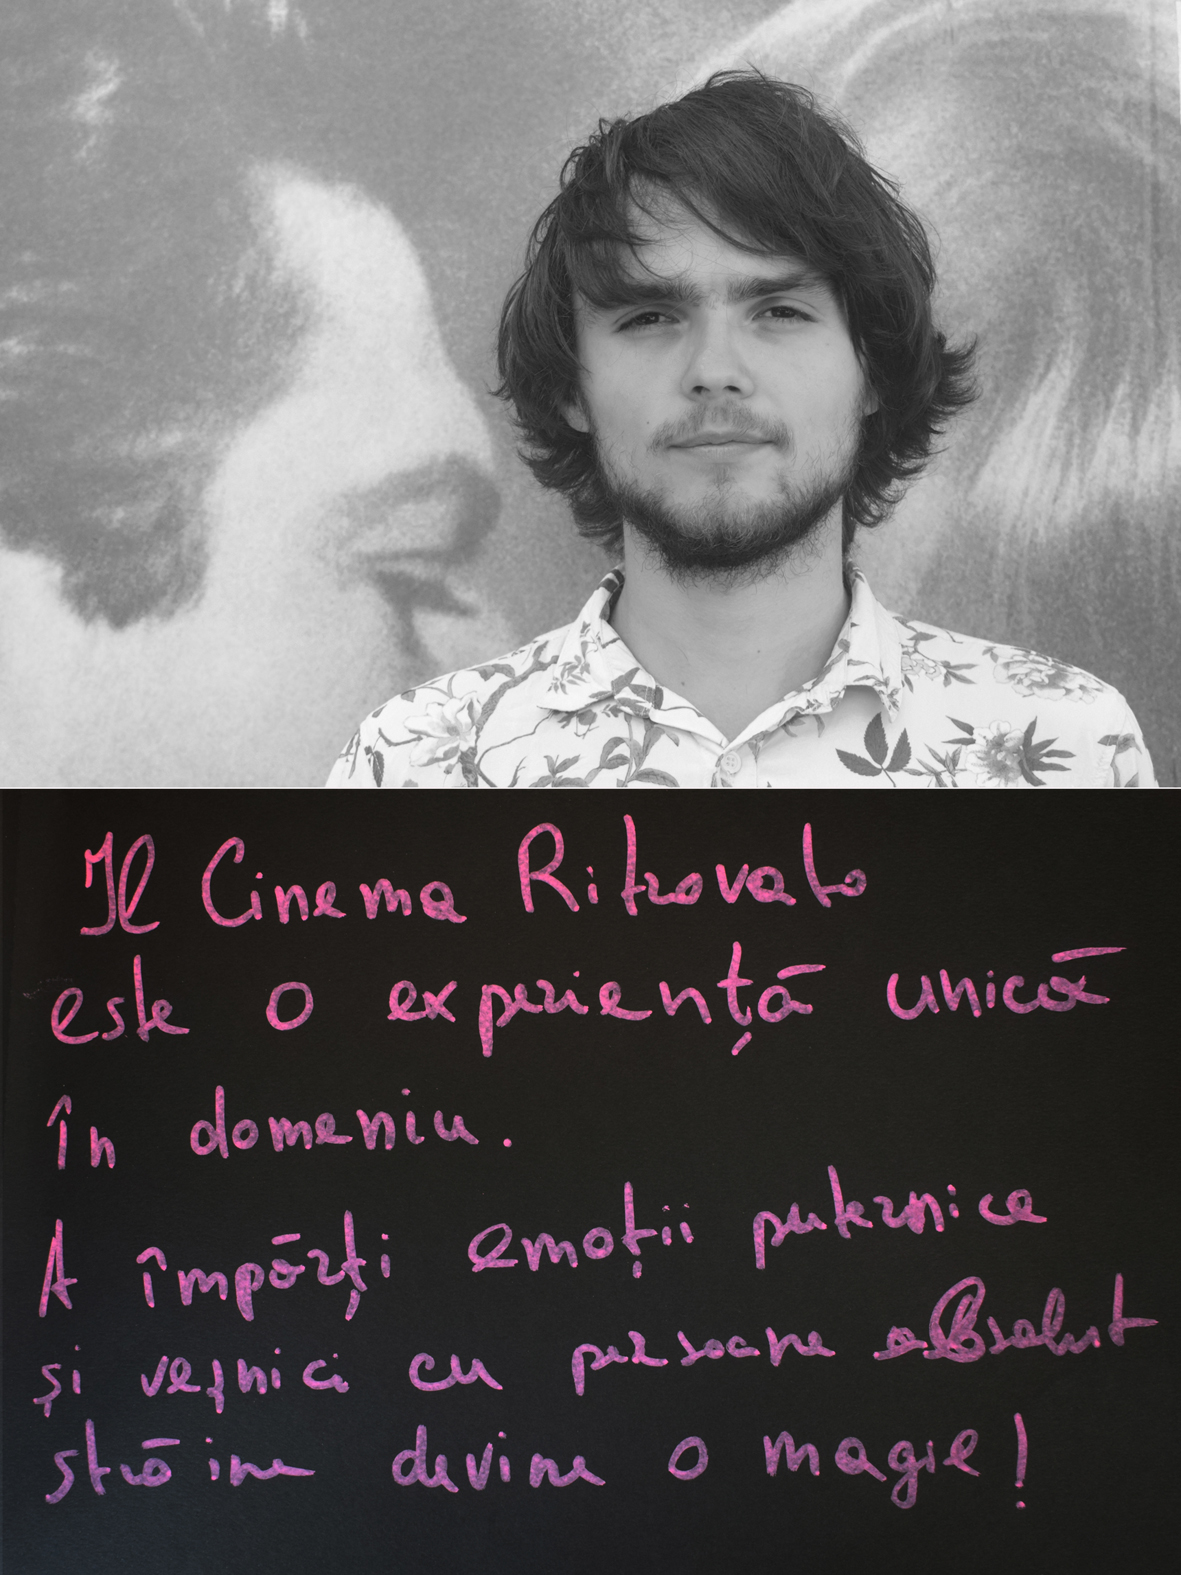 Il Cinema Ritrovato
este o experiență unică
în domeniu.
A împărți emoții puternice
și veșnici cu persoane absolut
străine devine o magie!